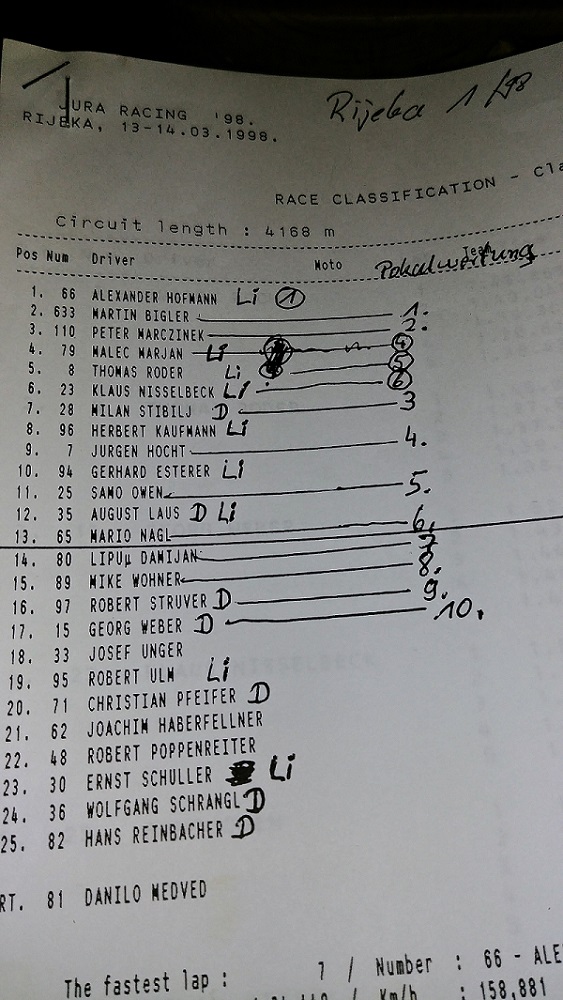 JURA RACING '98.
RIJEKA, 13-14.03.1998.
Rijeka 1/98
RACE CLASSIFICATION - Cla
Circuit length : 4168 m
Pos Num Driver Moto Team Pokalwertung
1. 66 ALEXANDER HOFMANN Li 1
2. 633 MARTIN BIGLER 1.
3. 110 PETER MARCZINEK 2.
4. 79 MALEC MARJAN Li 4
5. 8 THOMAS RODER Li 5
6. 23 KLAUS NISSELBECK Li 6
7. 28 MILAN STIBILJ D 3
8. 96 HERBERT KAUFMANN Li
9. 7 JURGEN HOCHT 4.
10. 94 GERHARD ESTERER Li
11. 25 SAMO OWEN 5.
12. 35 AUGUST LAUS D Li
13. 65 MARIO NAGL 6.
14. 80 LIPUµ DAMIJAN 7
15. 89 MIKE WOHNER 8.
16. 97 ROBERT STRUVER D 9.
17. 15 GEORG WEBER D 10.
18. 33 JOSEF UNGER
19. 95 ROBERT ULM Li
20. 71 CHRISTIAN PFEIFER D
21. 62 JOACHIM HABERFELLNER
22. 48 ROBERT POPPENREITER
23. 30 ERNST SCHULLER Li
24. 36 WOLFGANG SCHRANGL D
25. 82 HANS REINBACHER D
RT. 81 DANILO MEDVED
The fastest lap : 7 / Number : 66 - ALE
/ Km/h : 158.881